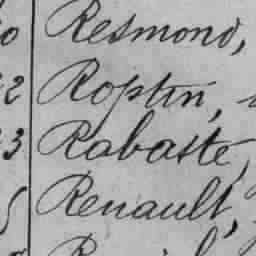 Resmond,
2 Roptin,
3 Rabasté,
Renault,